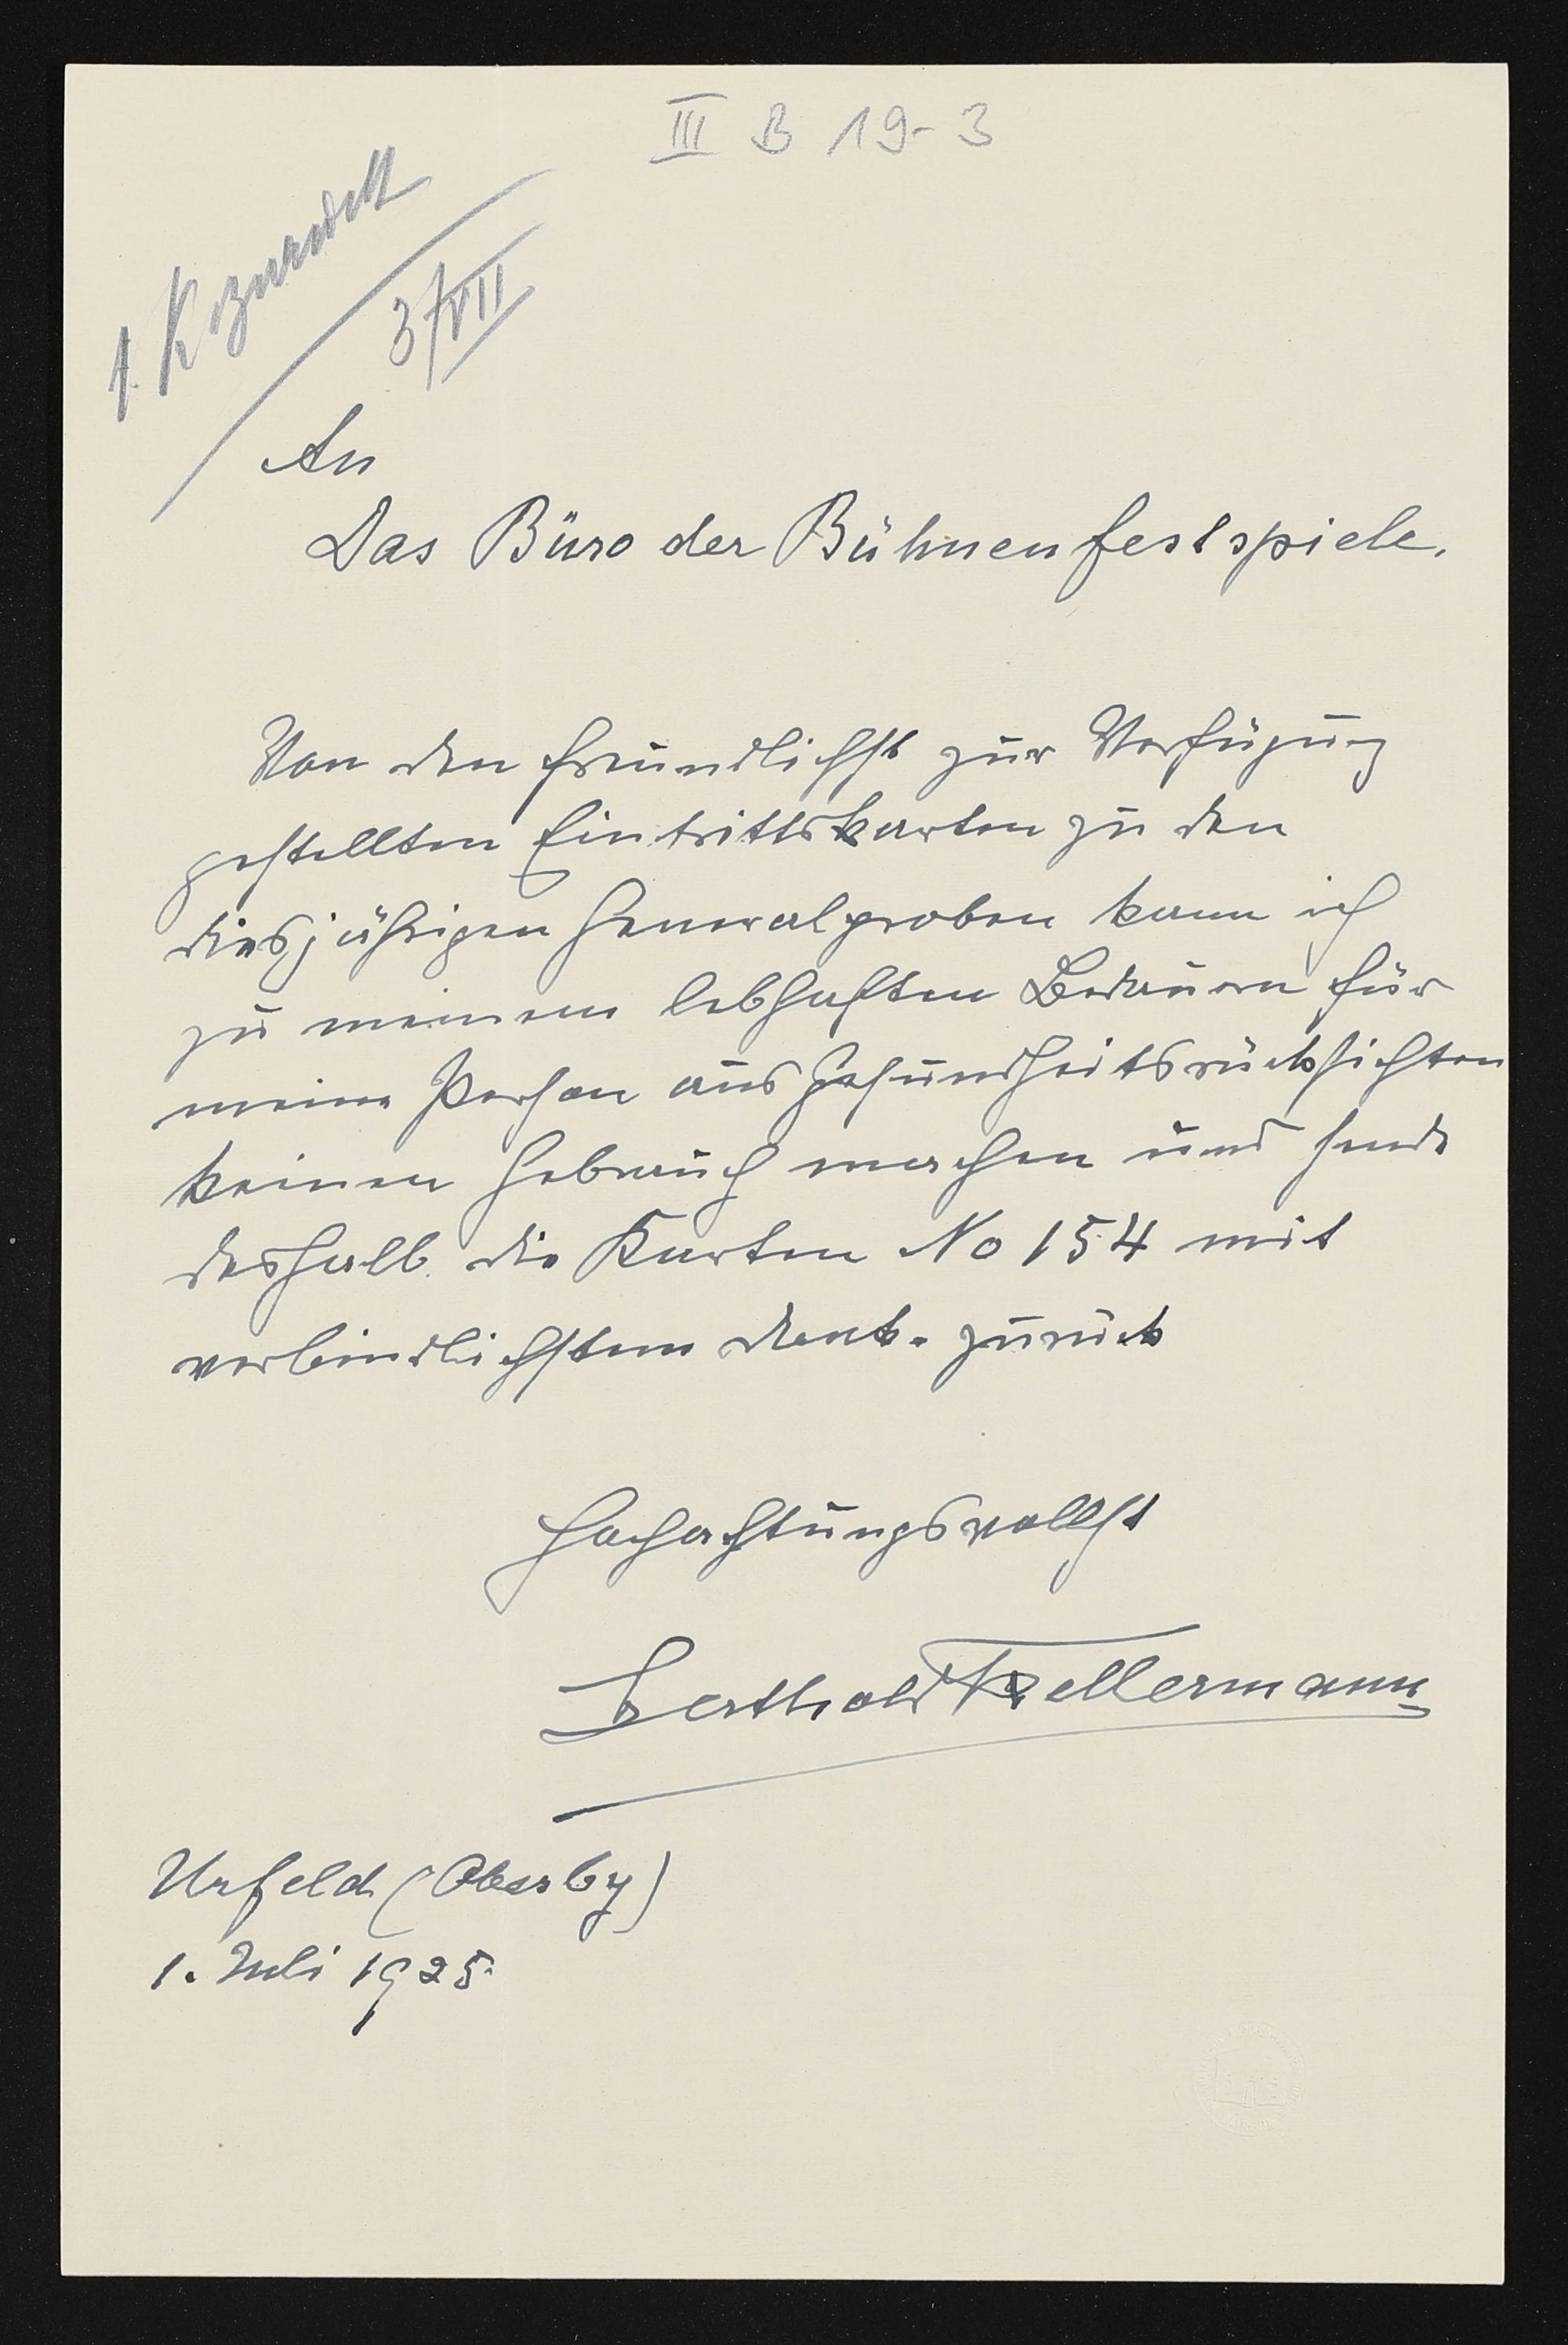 III B 19-3
1. K. zurück
3/VII
An
Das Büro der Bühnenfestspiele.
Von den freundlichst zur Verfügung
gestellten Eintrittskarten zu den
diesjährigen Generalproben kann ich
zu meinem lebhaften Bedauern für
meine Person aus Gesundheitsrücksichten
keinen Gebrauch machen und sende
deshalb die Karten No 154 mit
verbindlichstem Dank. zurück
Hochachtungsvollst
Berthold Kellermann
Urfeld (Oberby)
1. Juli 1925.